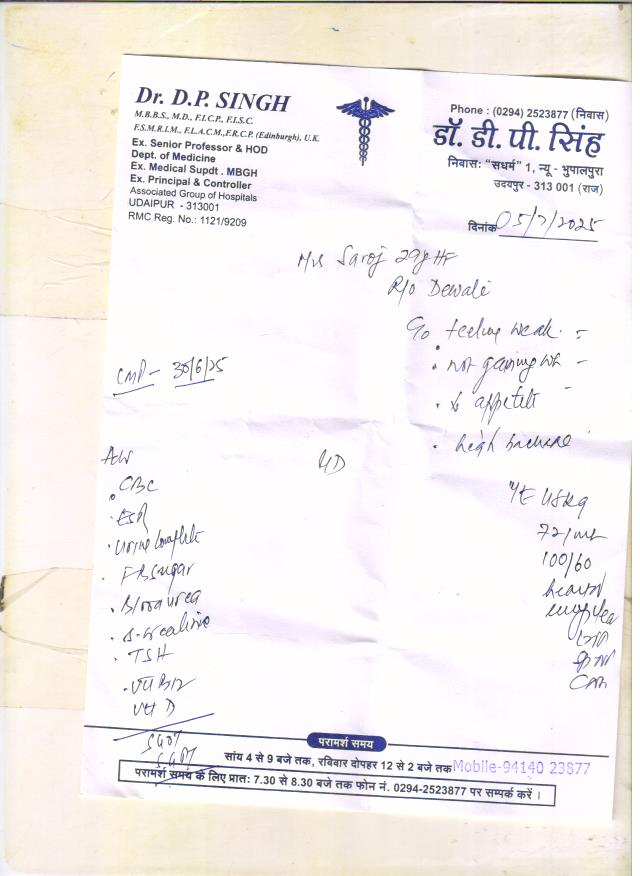 Dr. D.P. SINGH
M.B.B.S., M.D., F.I.C.P., F.I.S.C.
F.S.M.R.I.M., F.L.A.C.M.,F.R.C.P. (Edinburgh), U.K.
Ex. Senior Professor & HOD
Dept. of Medicine
Ex. Medical Supdt . MBGH
Ex. Principal & Controller
Associated Group of Hospitals
UDAIPUR - 313001
RMC Reg. No.: 1121/9209
Phone : (0294) 2523877 (निवास)
डॉ. डी. पी. सिंह
निवासः “सधर्म” 1, न्यू - भुपालपुरा
उदयपुर - 313 001 (राज)
दिनांक 05/7/2025
Mrs Saroj 29y
R/o Dewali
C/o feeling weak
• not gaining wt
• appetite
CMP - 30/6/25
Adv
• CBC
• ESR
• Urine Complete
• FB Sugar
• Blood urea
• S. Creatinine
• TSH
• Vit B12
Vit D
SGOT
SGPT
72/mt
100/60
परामर्श समय
सांय 4 से 9 बजे तक, रविवार दोपहर 12 से 2 बजे तक Mobile-94140 23877
परामर्श समय के लिए प्रातः 7.30 से 8.30 बजे तक फोन नं. 0294-2523877 पर सम्पर्क करें ।